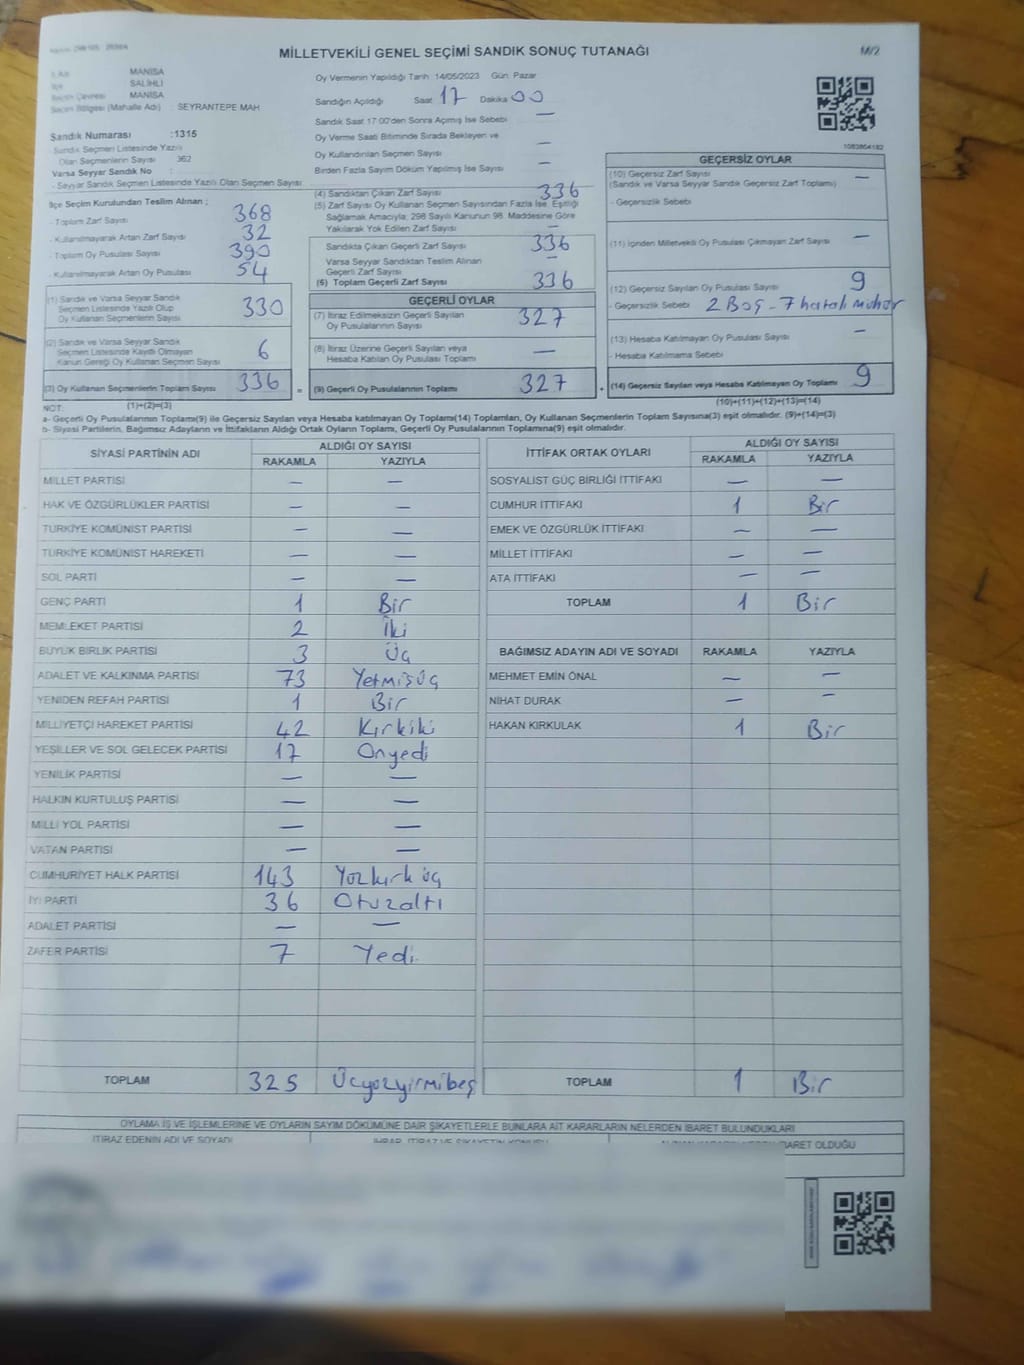 MİLLETVEKİLİ GENEL SEÇİMİ SANDIK SONUÇ TUTANAĞI
M/2
MANİSA
SALİHLİ
MANİSA
Seçim Bölgesi (Mahalle Adı) : SEYRANTEPE MAH
Sandık Numarası :1315
- Sandık Seçmen Listesinde Yazılı
Olan Seçmenlerin Sayısı 362
Varsa Seyyar Sandık No :
- Seyyar Sandık Seçmen Listesinde Yazılı Olan Seçmen Sayısı
Oy Vermenin Yapıldığı Tarih 14/05/2023 Gün Pazar
Sandığın Açıldığı Saat 17 Dakika 00
Sandık Saat 17:00'den Sonra Açılmış İse Sebebi —
Oy Verme Saati Bitiminde Sırada Bekleyen ve
Oy Kullandırılan Seçmen Sayısı —
Birden Fazla Sayım Döküm Yapılmış İse Sayısı —
1083804182
İlçe Seçim Kurulundan Teslim Alınan ;
- Toplam Zarf Sayısı 368
- Kullanılmayarak Artan Zarf Sayısı 32
- Toplam Oy Pusulası Sayısı 390
- Kullanılmayarak Artan Oy Pusulası 54
(1) Sandık ve Varsa Seyyar Sandık
Seçmen Listesinde Yazılı Olup
Oy Kullanan Seçmenlerin Sayısı 330
(2) Sandık ve Varsa Seyyar Sandık
Seçmen Listesinde Kayıtlı Olmayan
Kanun Gereği Oy Kullanan Seçmen Sayısı 6
(3) Oy Kullanan Seçmenlerin Toplam Sayısı 336
(1)+(2)=(3)
(4) Sandıktan Çıkan Zarf Sayısı 336
(5) Zarf Sayısı Oy Kullanan Seçmen Sayısından Fazla İse, Eşitliği
Sağlamak Amacıyla; 298 Sayılı Kanunun 98. Maddesine Göre
Yakılarak Yok Edilen Zarf Sayısı —
Sandıkta Çıkan Geçerli Zarf Sayısı 336
Varsa Seyyar Sandıktan Teslim Alınan
Geçerli Zarf Sayısı —
(6) Toplam Geçerli Zarf Sayısı 336
GEÇERLİ OYLAR
(7) İtiraz Edilmeksizin Geçerli Sayılan
Oy Pusulalarının Sayısı 327
(8) İtiraz Üzerine Geçerli Sayılan veya
Hesaba Katılan Oy Pusulası Toplamı —
= (9) Geçerli Oy Pusulalarının Toplamı 327
GEÇERSİZ OYLAR
(10) Geçersiz Zarf Sayısı —
(Sandık ve Varsa Seyyar Sandık Geçersiz Zarf Toplamı)
- Geçersizlik Sebebi
(11) İçinden Milletvekili Oy Pusulası Çıkmayan Zarf Sayısı —
(12) Geçersiz Sayılan Oy Pusulası Sayısı 9
- Geçersizlik Sebebi 2 Boş - 7 hatalı mühür
(13) Hesaba Katılmayan Oy Pusulası Sayısı —
- Hesaba Katılmama Sebebi
+ (14) Geçersiz Sayılan veya Hesaba Katılmayan Oy Toplamı 9
(10)+(11)+(12)+(13)=(14)
NOT:
a- Geçerli Oy Pusulalarının Toplamı(9) ile Geçersiz Sayılan veya Hesaba katılmayan Oy Toplamı(14) Toplamları, Oy Kullanan Seçmenlerin Toplam Sayısına(3) eşit olmalıdır. (9)+(14)=(3)
b- Siyasi Partilerin, Bağımsız Adayların ve İttifakların Aldığı Ortak Oyların Toplamı, Geçerli Oy Pusulalarının Toplamına(9) eşit olmalıdır.
SİYASİ PARTİNİN ADI ALDIĞI OY SAYISI
RAKAMLA YAZIYLA
MİLLET PARTİSİ — —
HAK VE ÖZGÜRLÜKLER PARTİSİ — —
TÜRKİYE KOMÜNİST PARTİSİ — —
TÜRKİYE KOMÜNİST HAREKETİ — —
SOL PARTİ — —
GENÇ PARTİ 1 Bir
MEMLEKET PARTİSİ 2 İki
BÜYÜK BİRLİK PARTİSİ 3 Üç
ADALET VE KALKINMA PARTİSİ 73 Yetmişüç
YENİDEN REFAH PARTİSİ 1 Bir
MİLLİYETÇİ HAREKET PARTİSİ 42 Kırkiki
YEŞİLLER VE SOL GELECEK PARTİSİ 17 Onyedi
YENİLİK PARTİSİ — —
HALKIN KURTULUŞ PARTİSİ — —
MİLLİ YOL PARTİSİ — —
VATAN PARTİSİ — —
CUMHURİYET HALK PARTİSİ 143 Yüzkırk üç
İYİ PARTİ 36 Otuzaltı
ADALET PARTİSİ — —
ZAFER PARTİSİ 7 Yedi
TOPLAM 325 Üçyüzyirmibeş
İTTİFAK ORTAK OYLARI ALDIĞI OY SAYISI
RAKAMLA YAZIYLA
SOSYALİST GÜÇ BİRLİĞİ İTTİFAKI — —
CUMHUR İTTİFAKI 1 Bir
EMEK VE ÖZGÜRLÜK İTTİFAKI — —
MİLLET İTTİFAKI — —
ATA İTTİFAKI — —
TOPLAM 1 Bir
BAĞIMSIZ ADAYIN ADI VE SOYADI RAKAMLA YAZIYLA
MEHMET EMİN ÖNAL — —
NİHAT DURAK — —
HAKAN KIRKULAK 1 Bir
TOPLAM 1 Bir
OYLAMA İŞ VE İŞLEMLERİNE VE OYLARIN SAYIM DÖKÜMÜNE DAİR ŞİKAYETLERLE BUNLARA AİT KARARLARIN NELERDEN İBARET BULUNDUKLARI
İTİRAZ EDENİN ADI VE SOYADI
İBARET OLDUĞU